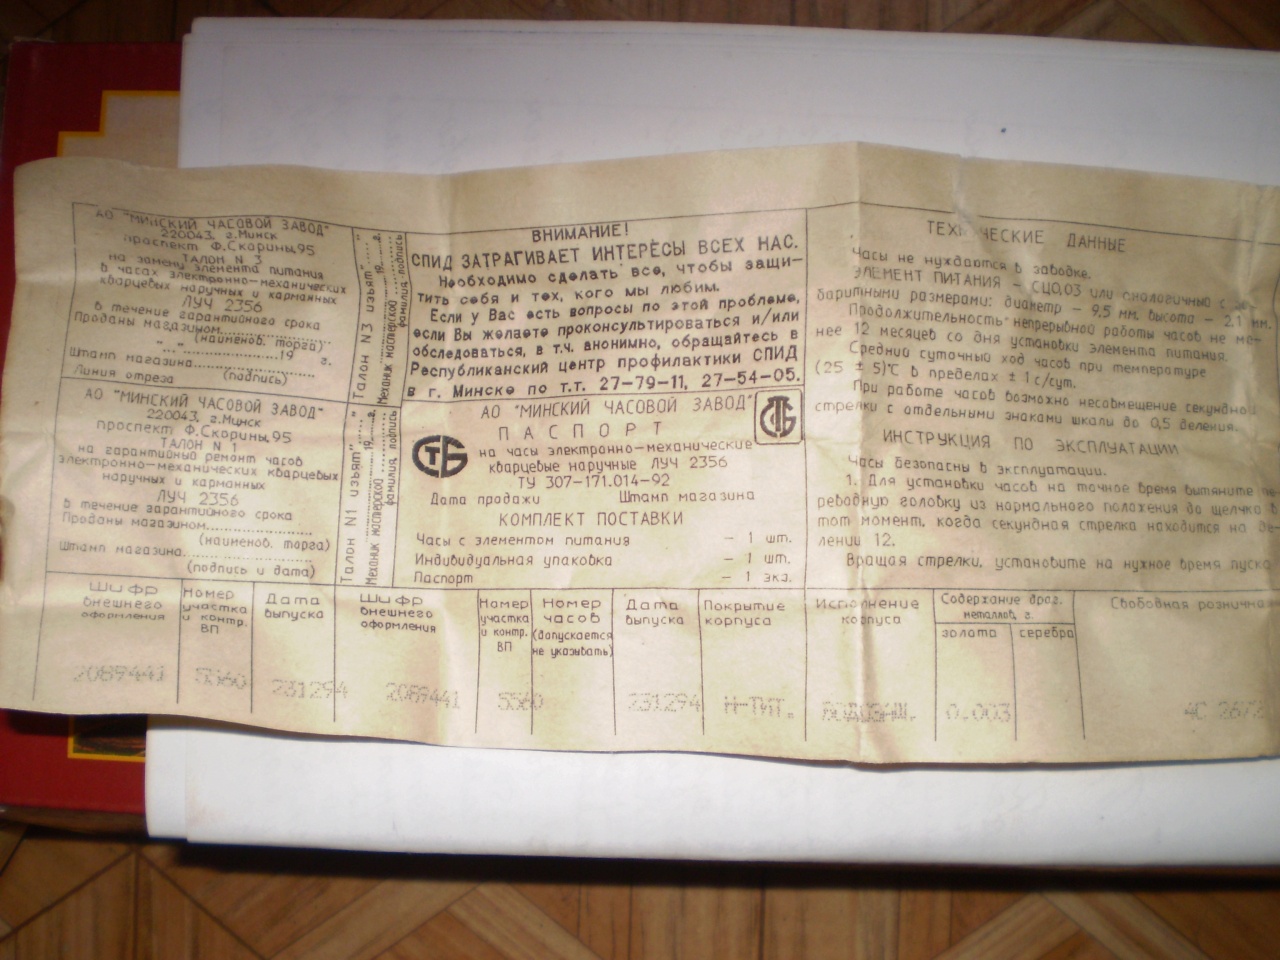 АО "МИНСКИЙ ЧАСОВОЙ ЗАВОД"
220043, г.Минск
проспект Ф.Скорины,95
ТАЛОН N 3
на замену элемента питания
в часах электронно-механических
кварцевых наручных и карманных
ЛУЧ 2356
в течение гарантийного срока
Проданы магазином
(наименов. торга)
" " 19 г.
Штамп магазина
(подпись)
Линия отреза
Талон N3 изъят "..." 19 г.
Механик мастерской
фамилия, подпись
АО "МИНСКИЙ ЧАСОВОЙ ЗАВОД"
220043, г.Минск
проспект Ф.Скорины,95
ТАЛОН N 1
на гарантийный ремонт часов
электронно-механических кварцевых
наручных и карманных
ЛУЧ 2356
в течение гарантийного срока
Проданы магазином
(наименов. торга)
Штамп магазина
(подпись и дата)
Талон N1 изъят "..." 19 г.
Механик мастерской
фамилия, подпись
ВНИМАНИЕ!
СПИД ЗАТРАГИВАЕТ ИНТЕРЕСЫ ВСЕХ НАС.
Необходимо сделать все, чтобы защи-
тить себя и тех, кого мы любим.
Если у Вас есть вопросы по этой проблеме,
если Вы желаете проконсультироваться и/или
обследоваться, в т.ч. анонимно, обращайтесь в
Республиканский центр профилактики СПИД
в г. Минске по т.т. 27-79-11, 27-54-05.
АО "МИНСКИЙ ЧАСОВОЙ ЗАВОД"
ПАСПОРТ
СТБ
на часы электронно-механические
кварцевые наручные ЛУЧ 2356
ТУ 307-171.014-92
Дата продажи Штамп магазина
КОМПЛЕКТ ПОСТАВКИ
Часы с элементом питания - 1 шт.
Индивидуальная упаковка - 1 шт.
Паспорт - 1 экз.
ТЕХНИЧЕСКИЕ ДАННЫЕ
Часы не нуждаются в заводке.
ЭЛЕМЕНТ ПИТАНИЯ - СЦ0,03 или аналогичный с га-
баритными размерами: диаметр - 9,5 мм, высота - 2,1 мм.
Продолжительность непрерывной работы часов не ме-
нее 12 месяцев со дня установки элемента питания.
Средний суточный ход часов при температуре
(25 ± 5)°С в пределах ± 1 с/сут.
При работе часов возможно несовмещение секундной
стрелки с отдельными знаками шкалы до 0,5 деления.
ИНСТРУКЦИЯ ПО ЭКСПЛУАТАЦИИ
Часы безопасны в эксплуатации.
1. Для установки часов на точное время вытяните пе-
реводную головку из нормального положения до щелчка в
тот момент, когда секундная стрелка находится на де-
лении 12.
Вращая стрелки, установите на нужное время
Шифр внешнего оформления
Номер участка и контр. ВП
Дата выпуска
Шифр внешнего оформления
Номер участка и контр. ВП
Номер часов (допускается не указывать)
Дата выпуска
Покрытие корпуса
Исполнение корпуса
Содержание драг. металлов, г.
золота серебра
Свободная
2089441 5560 231294 2089441 5560 231294 Н-ТИТ. ВОДОЗАЩ. 0.003 4С